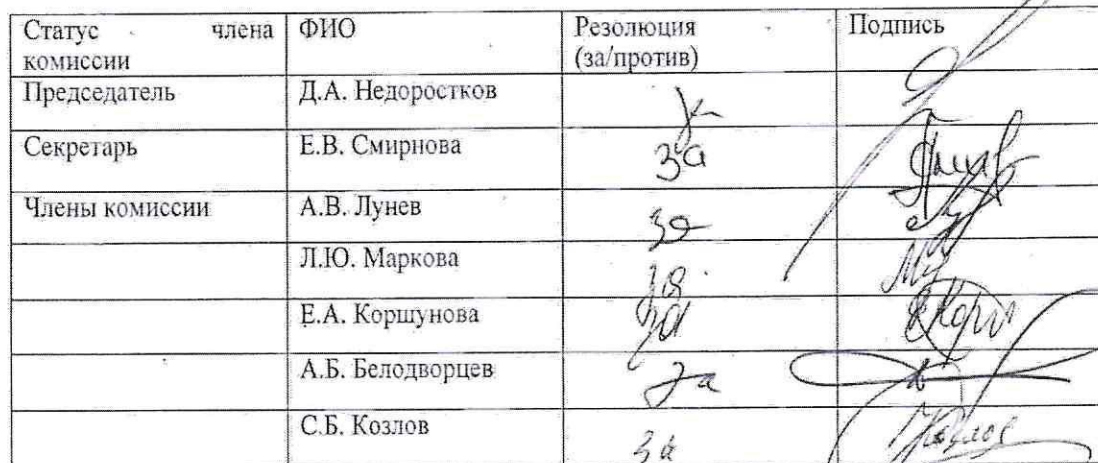 Статус члена комиссии ФИО Резолюция (за/против) Подпись
Председатель Д.А. Недоростков за
Секретарь Е.В. Смирнова за
Члены комиссии А.В. Лунев за
Л.Ю. Маркова за
Е.А. Коршунова за
А.Б. Белодворцев за
С.Б. Козлов за Козлов